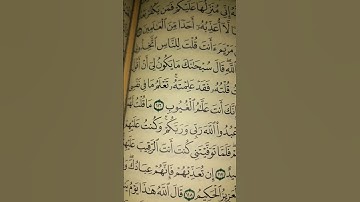 مُنَزِّلُهَا عَلَيْكُمْ فَمَن يَكْفُرْ
لَّآ أُعَذِّبُهُۥٓ أَحَدًا مِّنَ ٱلْعَٰلَمِينَ
مَرْيَمَ ءَأَنتَ قُلْتَ لِلنَّاسِ
ٱللَّهِ قَالَ سُبْحَٰنَكَ مَا يَكُونُ لِىٓ أَنْ
قُلْتُهُۥ فَقَدْ عَلِمْتَهُۥ تَعْلَمُ مَا فِى نَفْسِى
إِنَّكَ أَنتَ عَلَّٰمُ ٱلْغُيُوبِ ١١٦ مَا قُلْتُ
ٱللَّهَ رَبِّى وَرَبَّكُمْ وَكُنتُ عَلَيْهِمْ
فَلَمَّا تَوَفَّيْتَنِى كُنتَ أَنتَ ٱلرَّقِيبَ
١١٧ إِن تُعَذِّبْهُمْ فَإِنَّهُمْ عِبَادُكَ
ٱلْحَكِيمُ ١١٨ قَالَ ٱللَّهُ هَٰذَا يَوْمُ